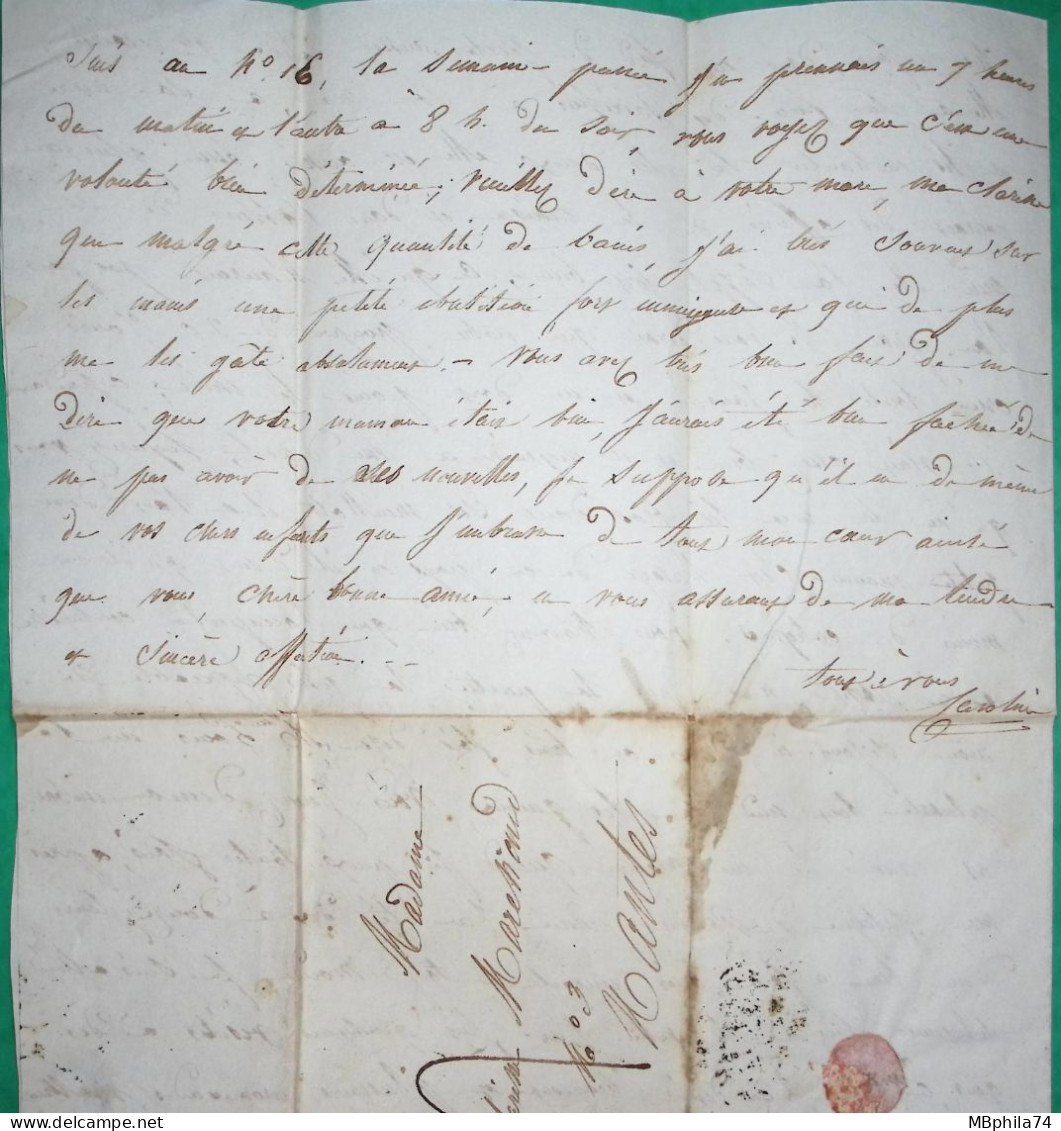 suis au no 16, la semaine passée j'en prennais un 7 heures
du matin et l'autre à 8 h. du soir vous voyez que c'est une
volonté bien déterminée; veuillez dire à votre mari, ma
que malgré cette quantité de bains, j'ai très souvent sur
les mains une petite ebulition fort et qui de plus
me les gâte absolument. - vous avez très bien fait de me
dire que votre maman était bien, j'aurais été bien fachée de
ne pas avoir de ses nouvelles, je suppose qu'il en de même
de vos chers enfants que j'embrasse de tout mon coeur ainsi
que vous, chère bonne amie, en vous assurant de ma tendre
et sincère affection. --
tout à vous
Caroline
Madame
Marchand
No 3
Nantes
MBphila74